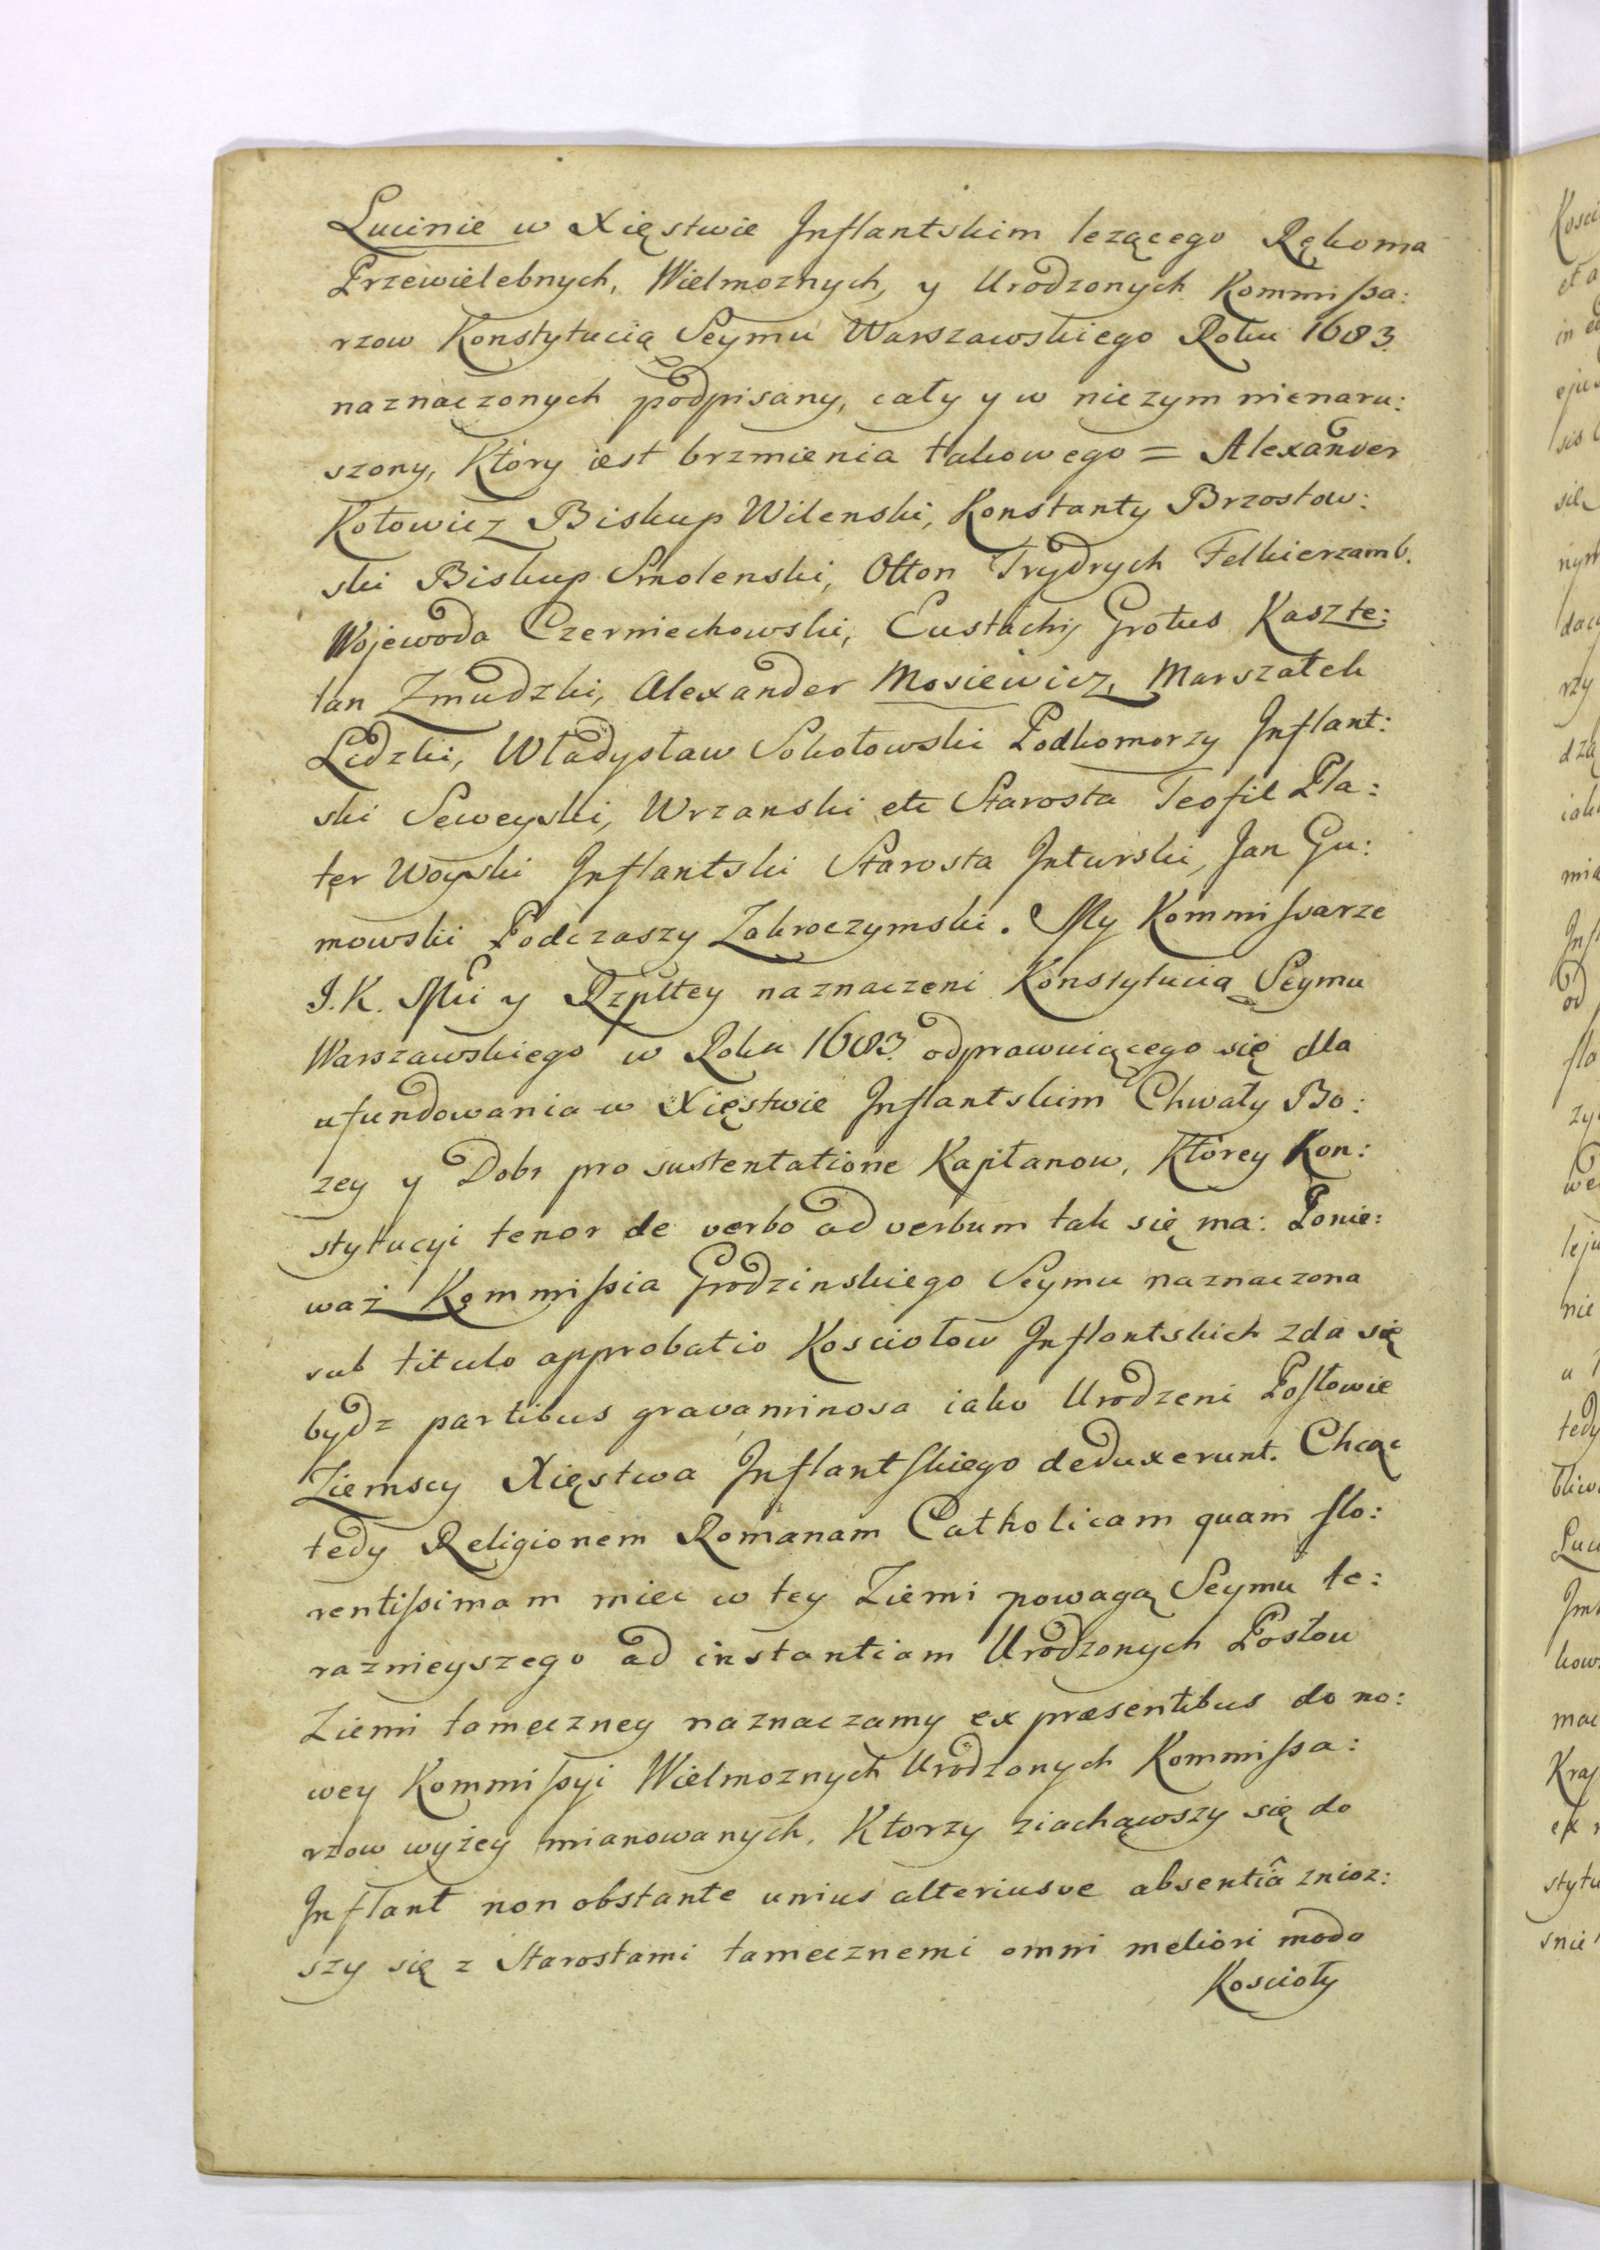 Lucinie w Xięstwie Inflantskim lezącego Rękoma
Przewielebnych, Wielmoznych, y Urodzonych Kommissa:
rzow Konstytucią Seymu Warszawskiego Roku 1683.
naznaczonych podpisany, cały y w niczym nienaru:
szony, Ktory iest brzmienia takowego = Alexander
Kotowicz Biskup Wilenski, Konstanty Brzostow:
ski Biskup Smolenski, Otton Frydrych Felkierzamb.
Wojewoda Czerniechowski, Eustachij Grotus Kaszte:
lan Zmudzki, Alexander Mosiewicz, Marszałek
Lidzki, Władysław Sokołowski Podkomorzy Inflant:
ski Seweyski, Wrzanski etc Starosta Teofil Pla:
ter Woyski Inflantski Starosta Inturski, Jan Gu:
mowski Podczaszy Zakroczymski. My Kommissarze
J.K. Mci y Rzpltey naznaczeni Konstytucią Seymu
Warszawskiego w Roku 1683. odprawuiącego się dla
ufundowania w Xięstwie Inflantskim Chwały Bo:
zey y Dobr pro sustentatione Kapłanow, Ktorey Kon:
stytucyi tenor de verbo ad verbum tak się ma: Ponie:
waż Kommissia Grodzinskiego Seymu naznaczona
sub titulo approbatio Kosciołow Inflantskich zda się
bydz partibus gravaminosa iako Urodzeni Posłowie
Ziemscy Xięstwa Inflantskiego deduxerunt. Chcąc
tedy Religionem Romanam Catholicam quam flo:
rentissimam miec w tey Ziemi powagą Seymu te:
raznieyszego ad instantiam Urodzonych Posłow
Ziemi tameczney naznaczamy ex præsentibus do no:
wey Kommissyi Wielmoznych Urodzonych Kommissa:
rzow wyżey mianowanych, Ktorzy ziachawszy się do
Inflant non obstante unius alteriusve absentiâ znioz:
szy się z Starostami tamecznemi omni meliori modo
Koscioły